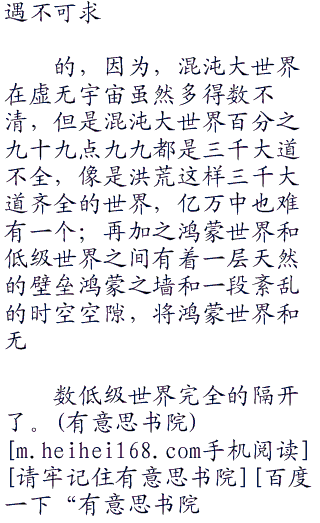 遇不可求
的，因为，混沌大世界
在虚无宇宙虽然多得数不
清，但是混沌大世界百分之
九十九点九九都是三千大道
不全，像是洪荒这样三千大
道齐全的世界，亿万中也难
有一个；再加之鸿蒙世界和
低级世界之间有着一层天然
的壁垒鸿蒙之墙和一段紊乱
的时空空隙，将鸿蒙世界和
无
数低级世界完全的隔开
了。(有意思书院)
[m.heihei168.com手机阅读]
[请牢记住有意思书院][百度
一下“有意思书院